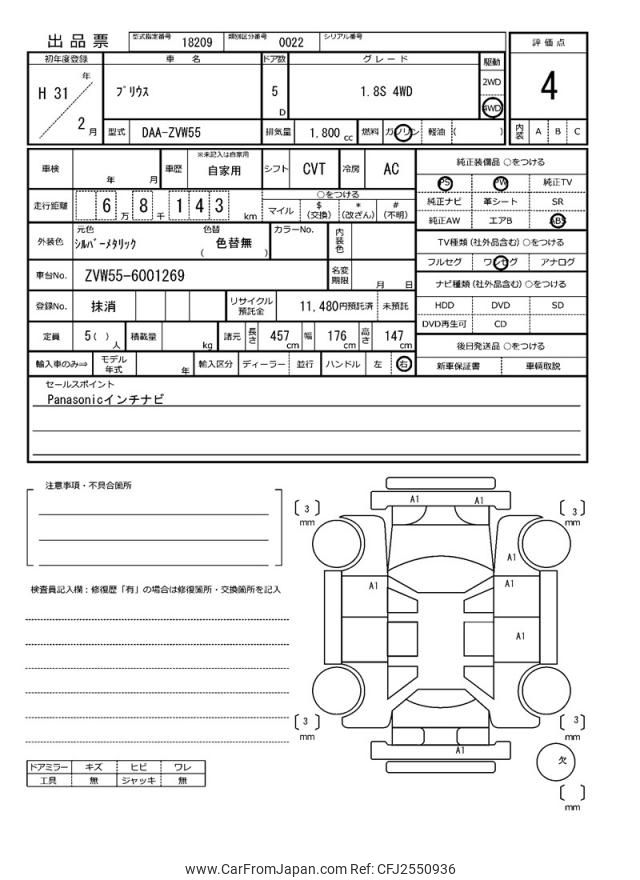 出品票 型式指定番号 18209 類別区分番号 0022 シリアル番号
評価点
4
内装 A B C
初年度登録 車名 ドア数 グレード 駆動
H 31 年 2 月
プリウス 5 D 1.8S 4WD 2WD 4WD
型式 DAA-ZVW55 排気量 1.800 cc 燃料 ガソリン 軽油 ( )
車検 年 月 車歴 ※未記入は自家用 自家用 シフト CVT 冷房 AC
走行距離 6 万 8 千 1 4 3 km
○をつける
マイル $(交換) *(改ざん) #(不明)
外装色 元色 シルバーメタリック 色替 色替無 ( ) カラーNo. 内装色
車台No. ZVW55-6001269 名変期限 月 日
登録No. 抹消 リサイクル預託金 11,480円預託済 未預託
定員 5 ( ) 人 積載量 kg 諸元 長さ 457 cm 幅 176 cm 高さ 147 cm
輸入車のみ⇒ モデル年式 年 輸入区分 ディーラー 並行 ハンドル 左 右
純正装備品 ○をつける
PS PW 純正TV
純正ナビ 革シート SR
純正AW エアB ABS
TV種類 (社外品含む) ○をつける
フルセグ ワンセグ アナログ
ナビ種類 (社外品含む) ○をつける
HDD DVD SD
DVD再生可 CD
後日発送品 ○をつける
新車保証書 車輌取説
セールスポイント
Panasonicインチナビ
注意事項・不具合箇所
検査員記入欄：修復歴「有」の場合は修復箇所・交換箇所を記入
ドアミラー キズ ヒビ ワレ
工具 無 ジャッキ 無
A1 A1
3 mm
3 mm
A1
A1 A1
A1
3 mm
3 mm
A1
欠
mm
www.CarFromJapan.com Ref: CFJ2550936